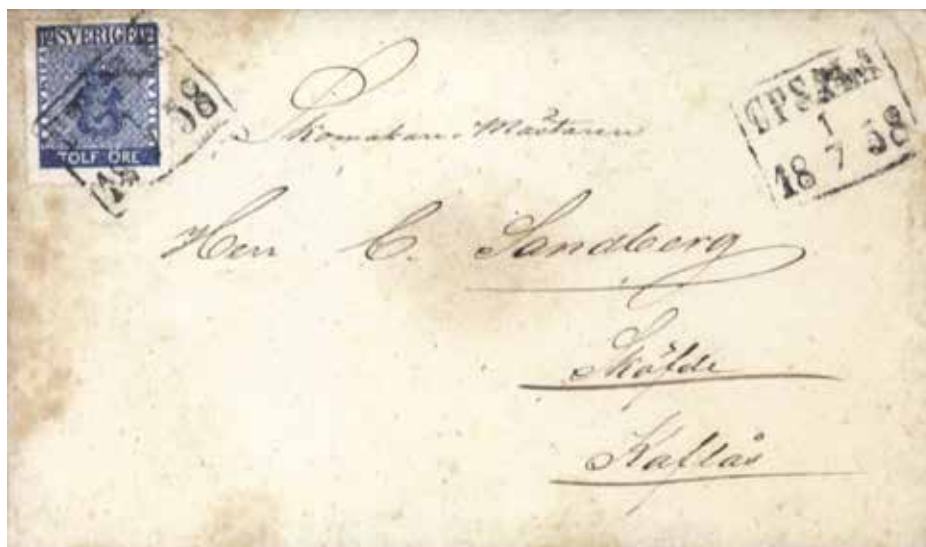 12 SVERIGE 12
TOLF ÖRE
18 58
UPSALA
1
18 7 58
Skomakare Mästaren
Herr C. Sandberg
Sköfde
Kaflås